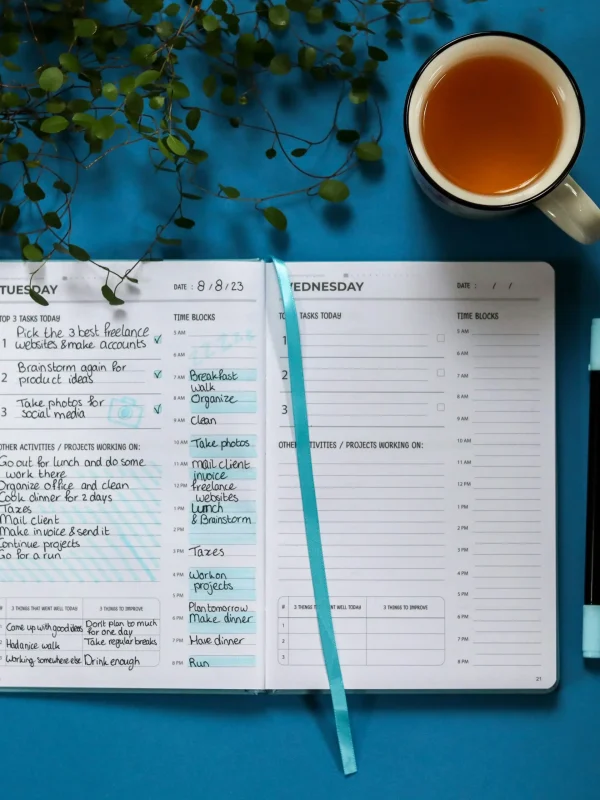 TUESDAY
DATE : 8/8/23
TOP 3 TASKS TODAY
1 Pick the 3 best freelance
websites & make accounts
2 Brainstorm again for
product ideas
3 Take photos for
social media
OTHER ACTIVITIES / PROJECTS WORKING ON:
Go out for lunch and do some
work there
Organize office and clean
Cook dinner for 2 days
Taxes
Mail client
Make invoice & send it
Continue projects
Go for a run
# 3 THINGS THAT WENT WELL TODAY 3 THINGS TO IMPROVE
Came up with good ideas Don't plan to much
for one day
Had a nice walk Take regular breaks
Working somewhere else Drink enough
TIME BLOCKS
5 AM
6 AM
7 AM Breakfast
walk
8 AM Organize
9 AM Clean
10 AM Take photos
11 AM mail client
invoice
12 PM freelance
websites
1 PM Lunch
& Brainstorm
2 PM
3 PM Taxes
4 PM Work on
5 PM projects
Plan tomorrow
6 PM Make dinner
7 PM Have dinner
8 PM Run
WEDNESDAY
DATE : / /
TASKS TODAY
1
2
3
OTHER ACTIVITIES / PROJECTS WORKING ON:
# 3 THINGS THAT WENT WELL TODAY 3 THINGS TO IMPROVE
1
2
3
TIME BLOCKS
5 AM
6 AM
7 AM
8 AM
9 AM
10 AM
11 AM
12 PM
1 PM
2 PM
3 PM
4 PM
5 PM
6 PM
7 PM
8 PM
21